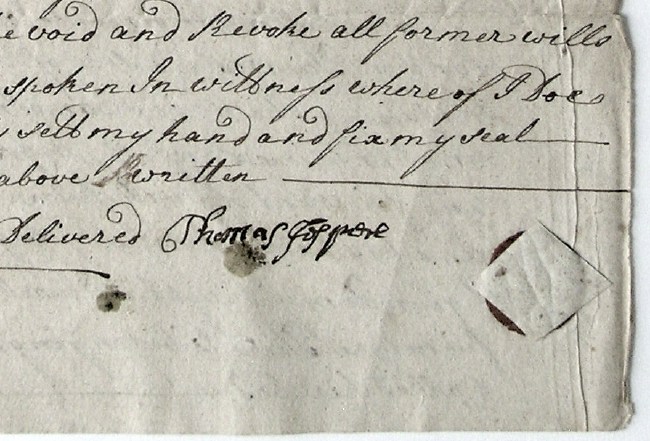 void and Revoke all former wills
spoken In wittness where of I Doe
sett my hand and fix my seal
above written
Delivered Thomas